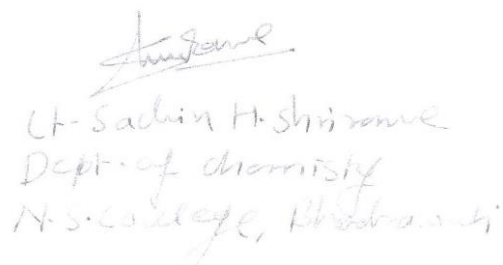 Lt. Sachin H. Shrirame
Dept. of chemisty
N.S. College, Bhadrawati